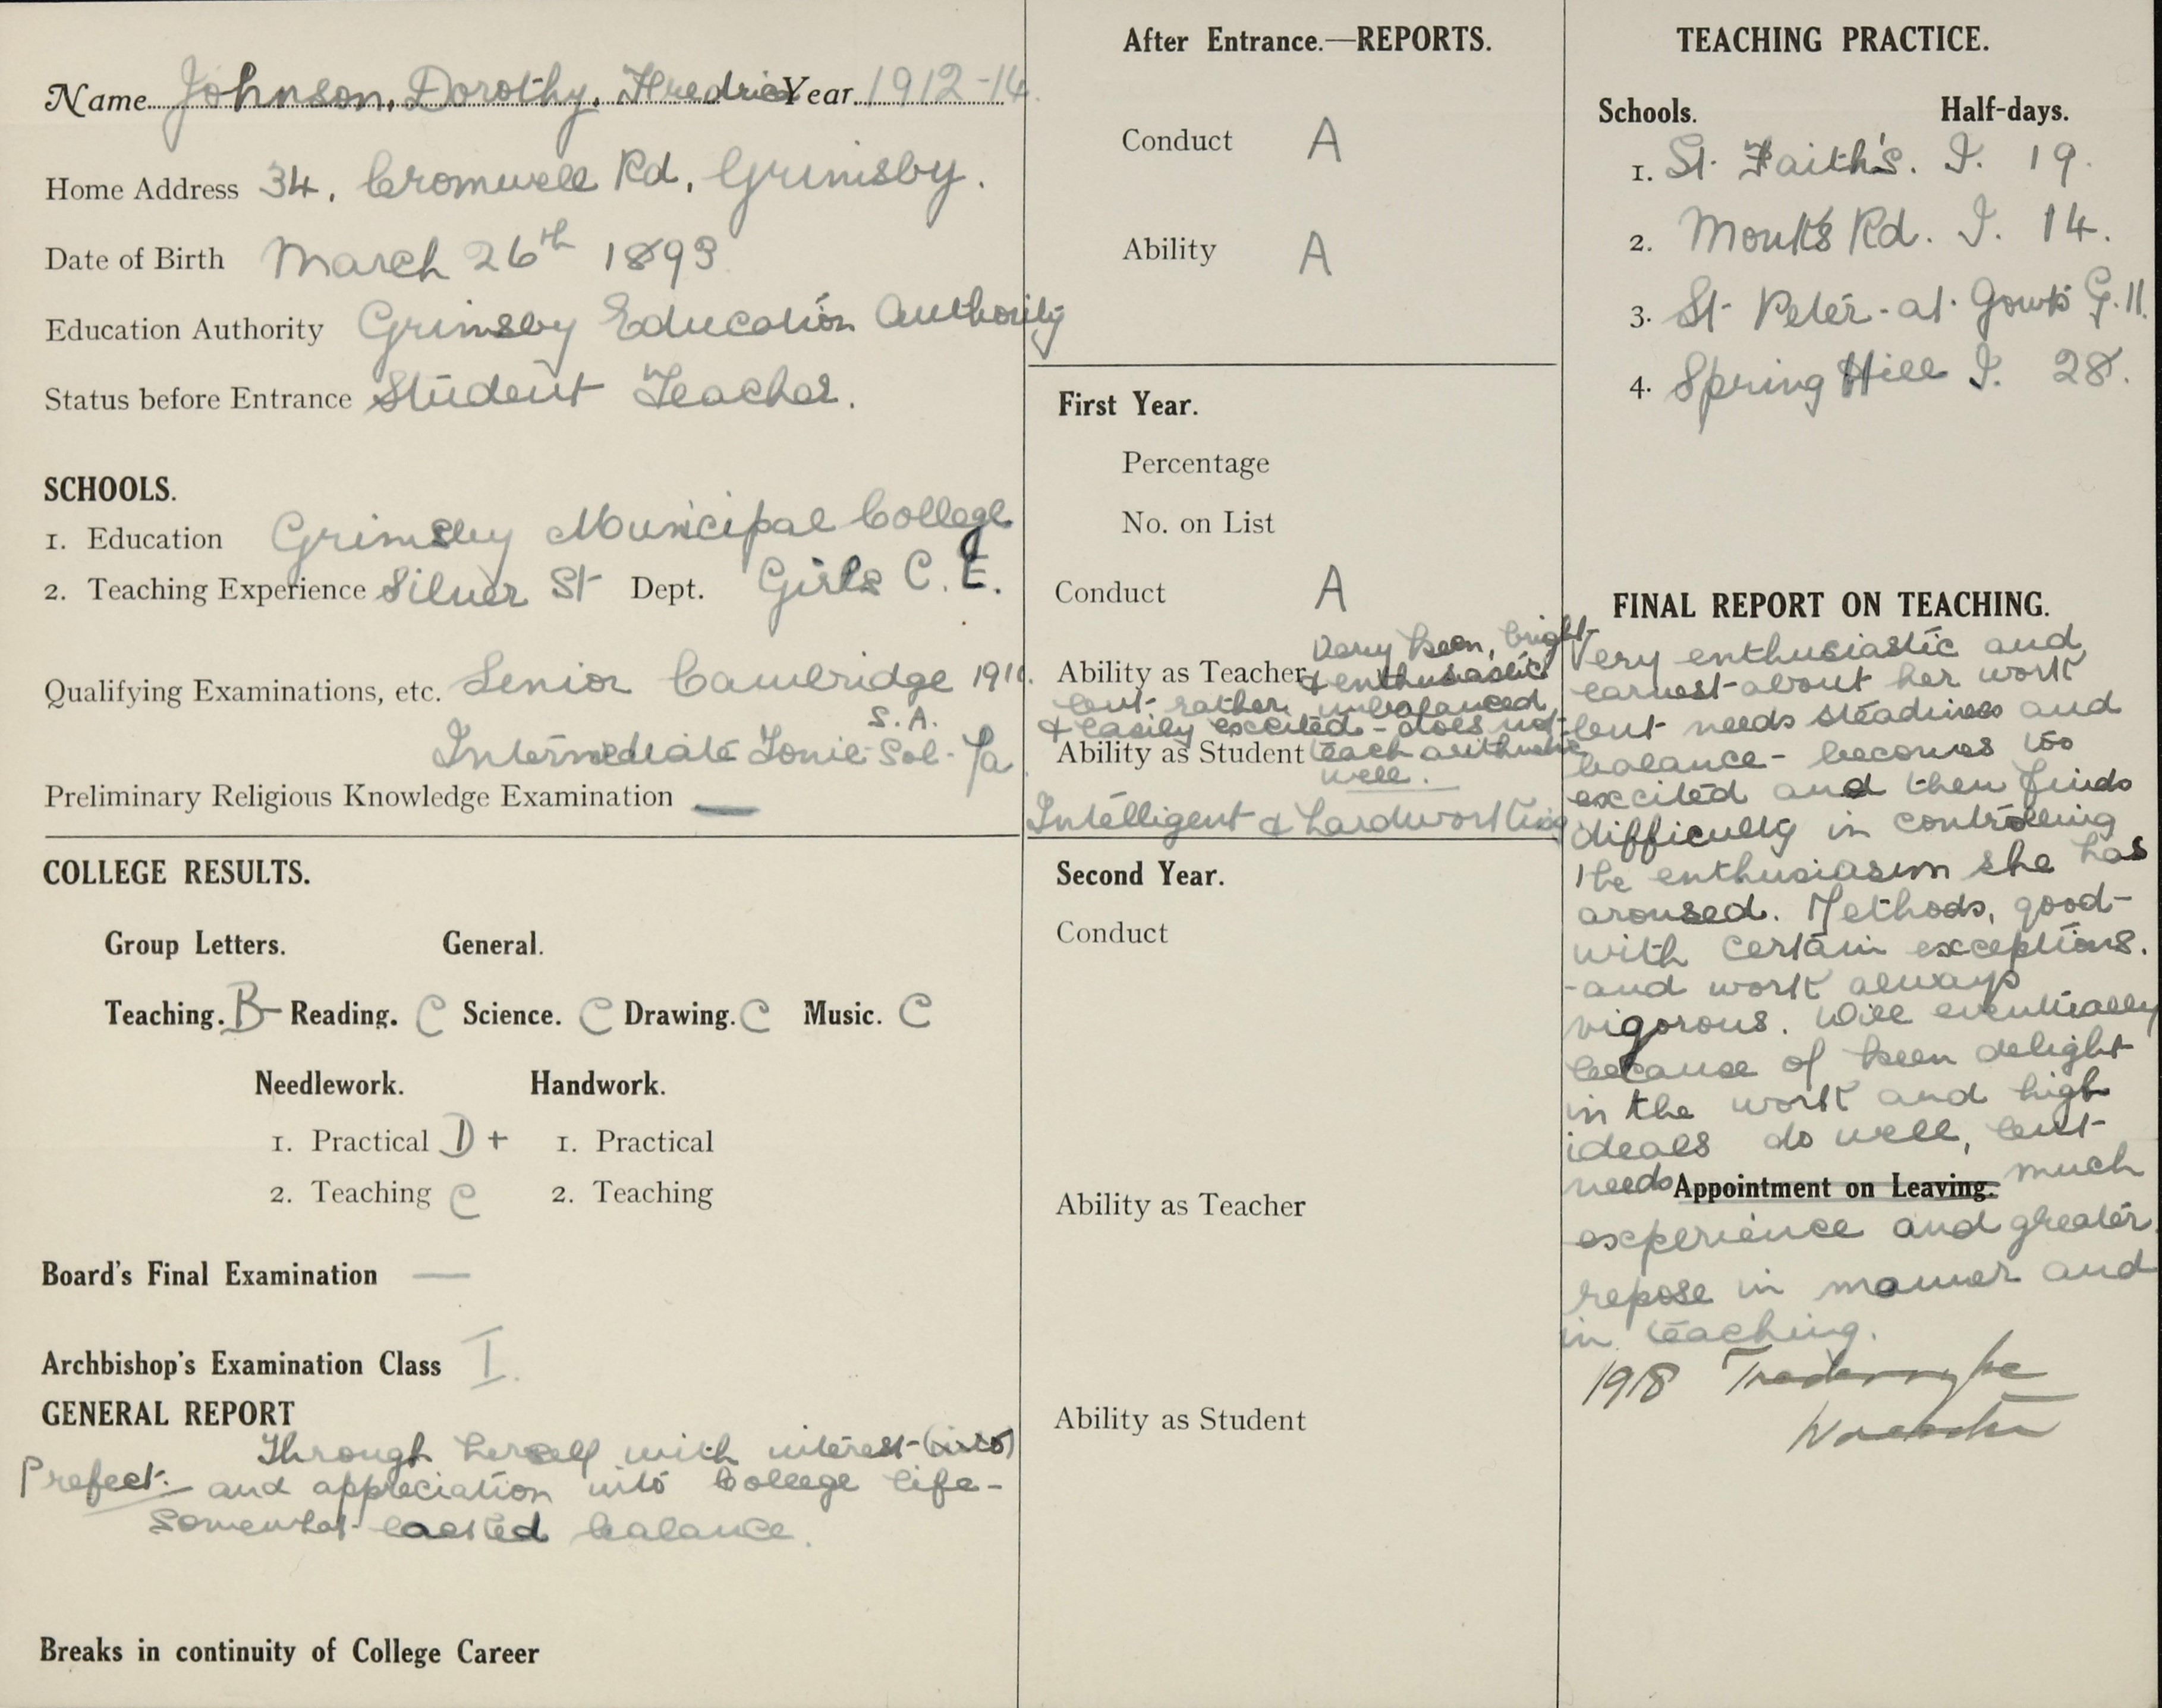 Name Johnson, Dorothy, Fredrica Year 1912-14.
Home Address 34, Cromwell Rd, Grimsby.
Date of Birth March 26th 1893
Education Authority Grimsby Education Authority
Status before Entrance Student Teacher.
SCHOOLS.
1. Education Grimsby Municipal College
2. Teaching Experience Silver St Dept. Girls C. E.
Qualifying Examinations, etc. Senior Cambridge 1910.
S.A.
Intermediate Tonic-Sol-Fa
Preliminary Religious Knowledge Examination —
COLLEGE RESULTS.
Group Letters. General.
Teaching. B- Reading. C Science. C Drawing. C Music. C
Needlework. Handwork.
1. Practical D+ 1. Practical
2. Teaching C 2. Teaching
Board's Final Examination —
Archbishop's Examination Class I.
GENERAL REPORT
Through herself with interest (into)
Prefect. and appreciation into College life-
somewhat lacked balance.
Breaks in continuity of College Career
After Entrance.—REPORTS.
Conduct A
Ability A
First Year.
Percentage
No. on List
Conduct A
Very keen, bright
Ability as Teacher & enthusiastic
but rather unbalanced
& easily excited - does not
Ability as Student teach arithmetic
well.
Intelligent & hardworking
Second Year.
Conduct
Ability as Teacher
Ability as Student
TEACHING PRACTICE.
Schools. Half-days.
1. St. Faith's. I. 19.
2. Monks Rd. I. 14.
3. St. Peter-at-Gowts G. 11.
4. Spring Hill I. 28.
FINAL REPORT ON TEACHING.
Very enthusiastic and
earnest about her work
but needs steadiness and
balance - becomes too
excited and then finds
difficulty in controlling
the enthusiasm she has
aroused. Methods, good-
with certain exceptions.
- and work always
vigorous. Will eventually
because of keen delight
in the work and high
ideals do well, but
needs Appointment on Leaving. much
experience and greater
repose in manner and
in teaching.
1918